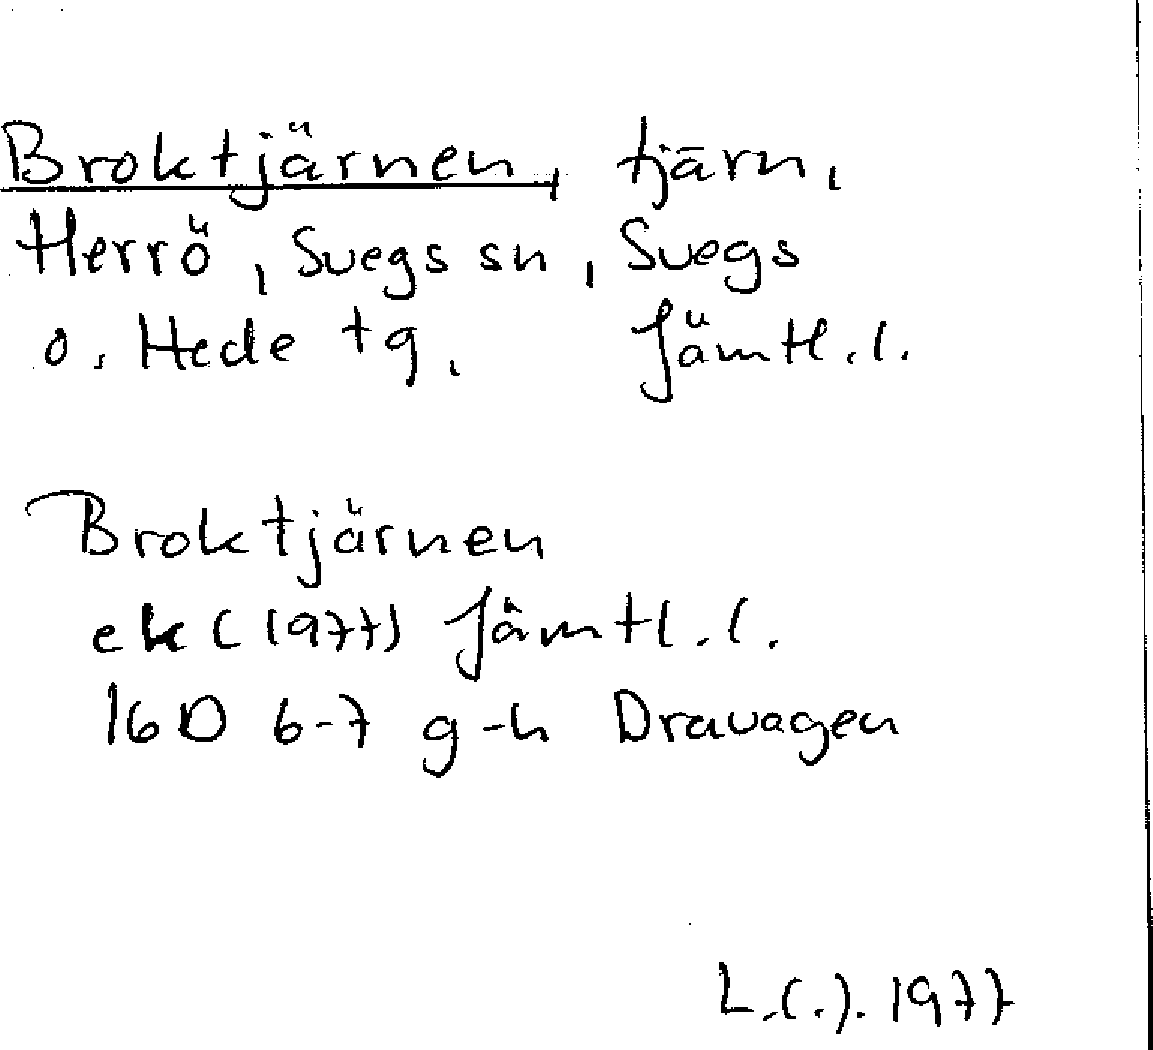 Broktjärnen, tjärn,
Herrö, Svegs sn, Svegs
o. Hede tg, Jämtl.l.
Broktjärnen
ek (1977) Jämtl.l.
16D 6-7 g-h Dravagen
L.(.). 1977